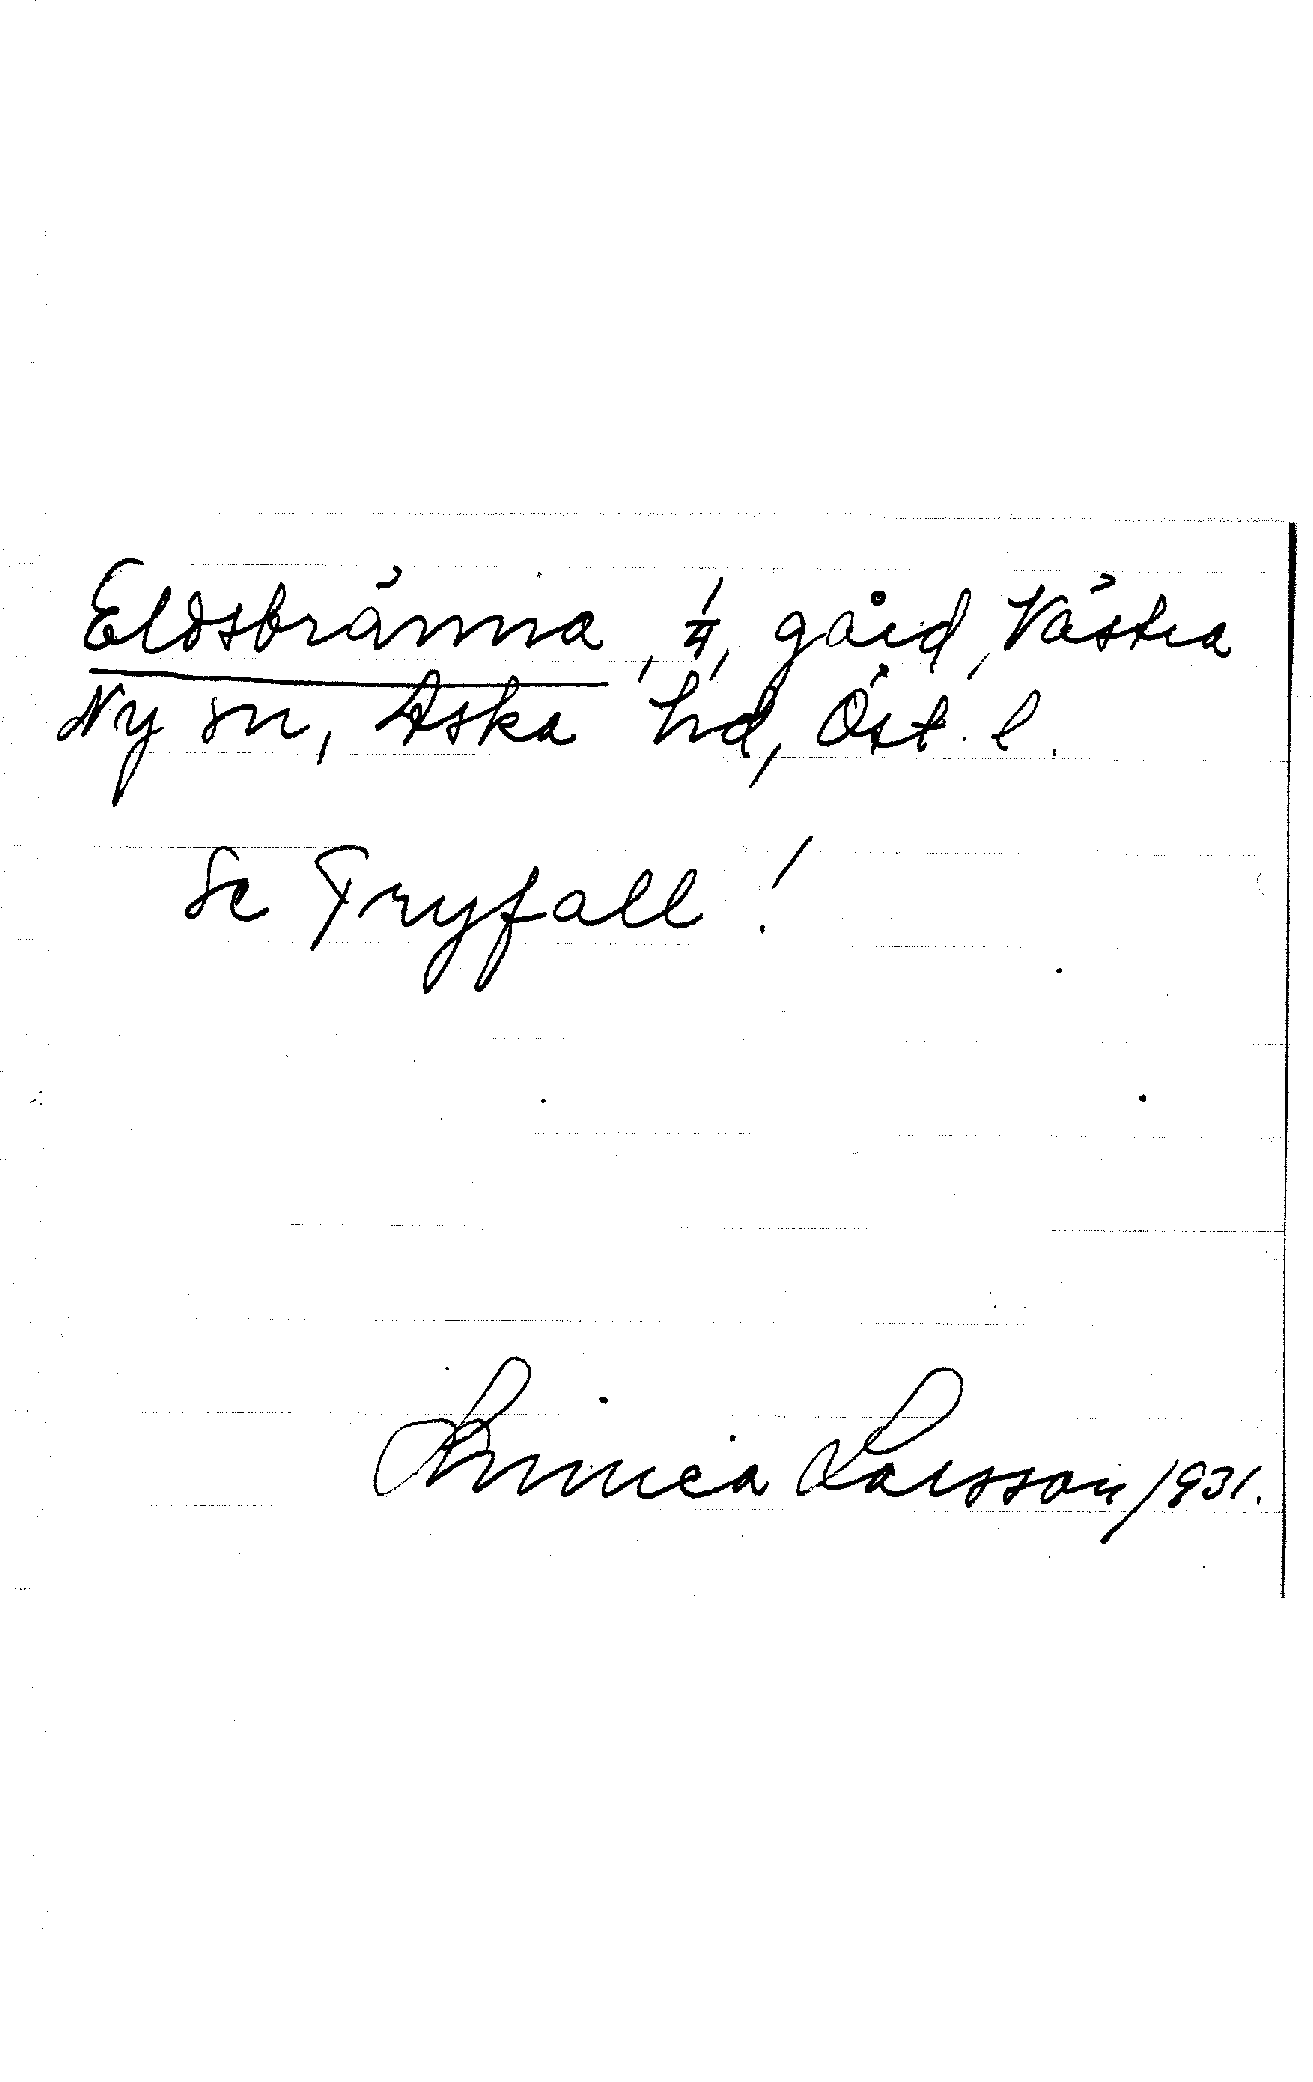 Eldsbränna, 1/4, gård, Västra
Ny sn, Aska hd, Öst. l.
Se Fryfall!
Linnéa Larsson 1931.